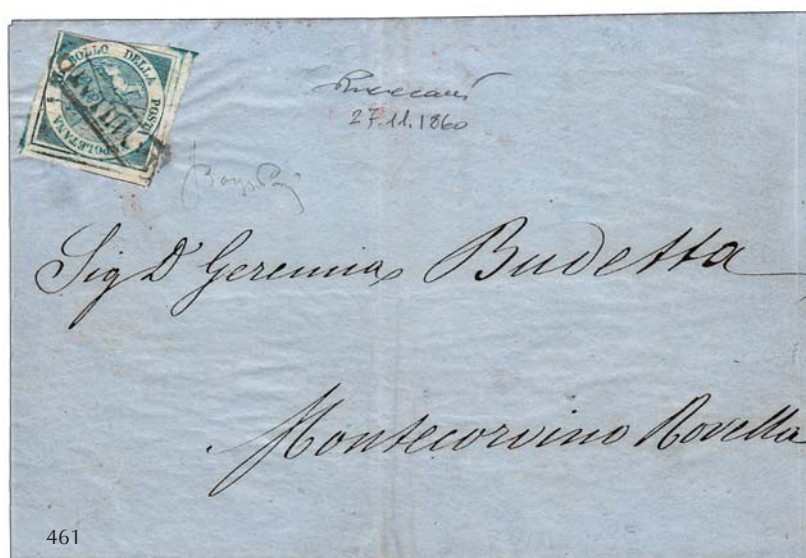 BOLLO DELLA POSTA NAPOLETANA
ANNULLATO
27.11.1860
Sig D. Geremia Budetta
Montecorvino Rovella
461